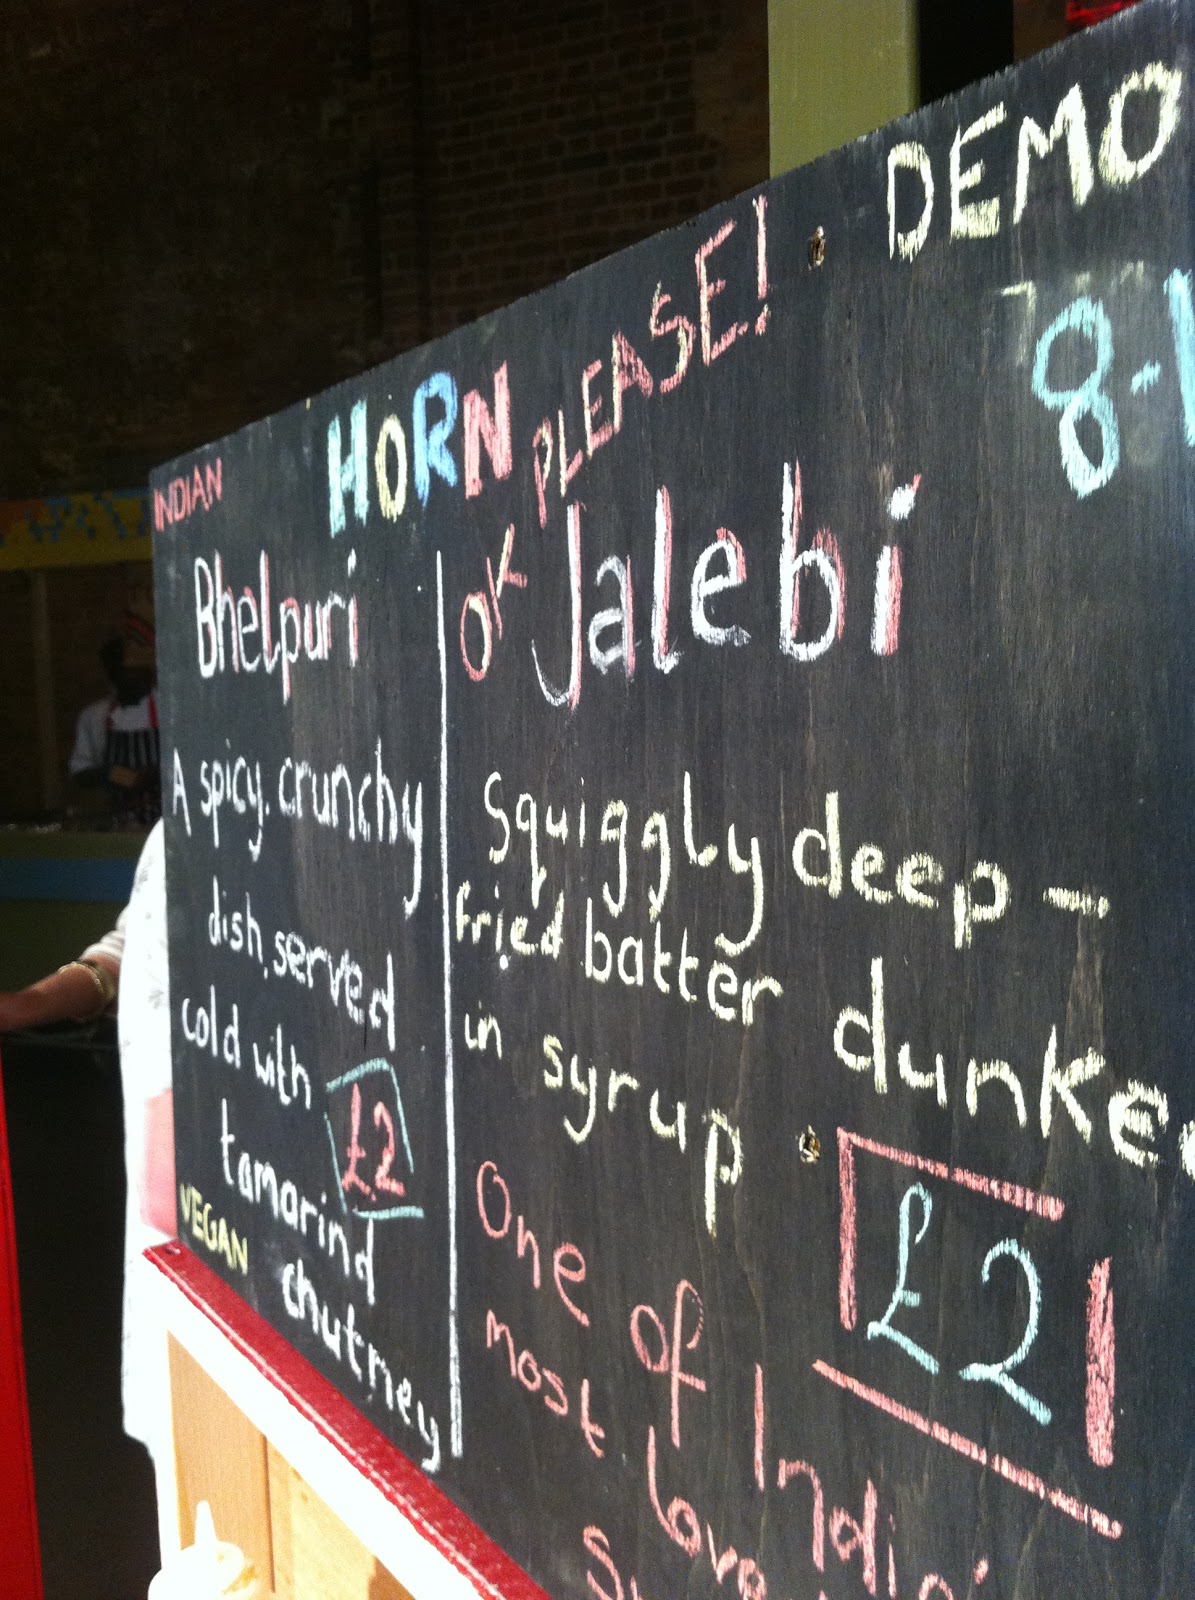 INDIAN
HORN PLEASE! DEMO
OK
8-
Bhelpuri
A spicy, crunchy
dish, served
cold with
tamarind
chutney
£2
VEGAN
Jalebi
Squiggly deep-
fried batter dunked
in syrup.
£2
One of
most